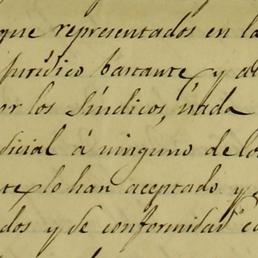 que representados en la
jurídico bastante y al
or los Síndicos, nada
dicial á ninguno de los
te lo han aceptado y
dos y de conformidad co